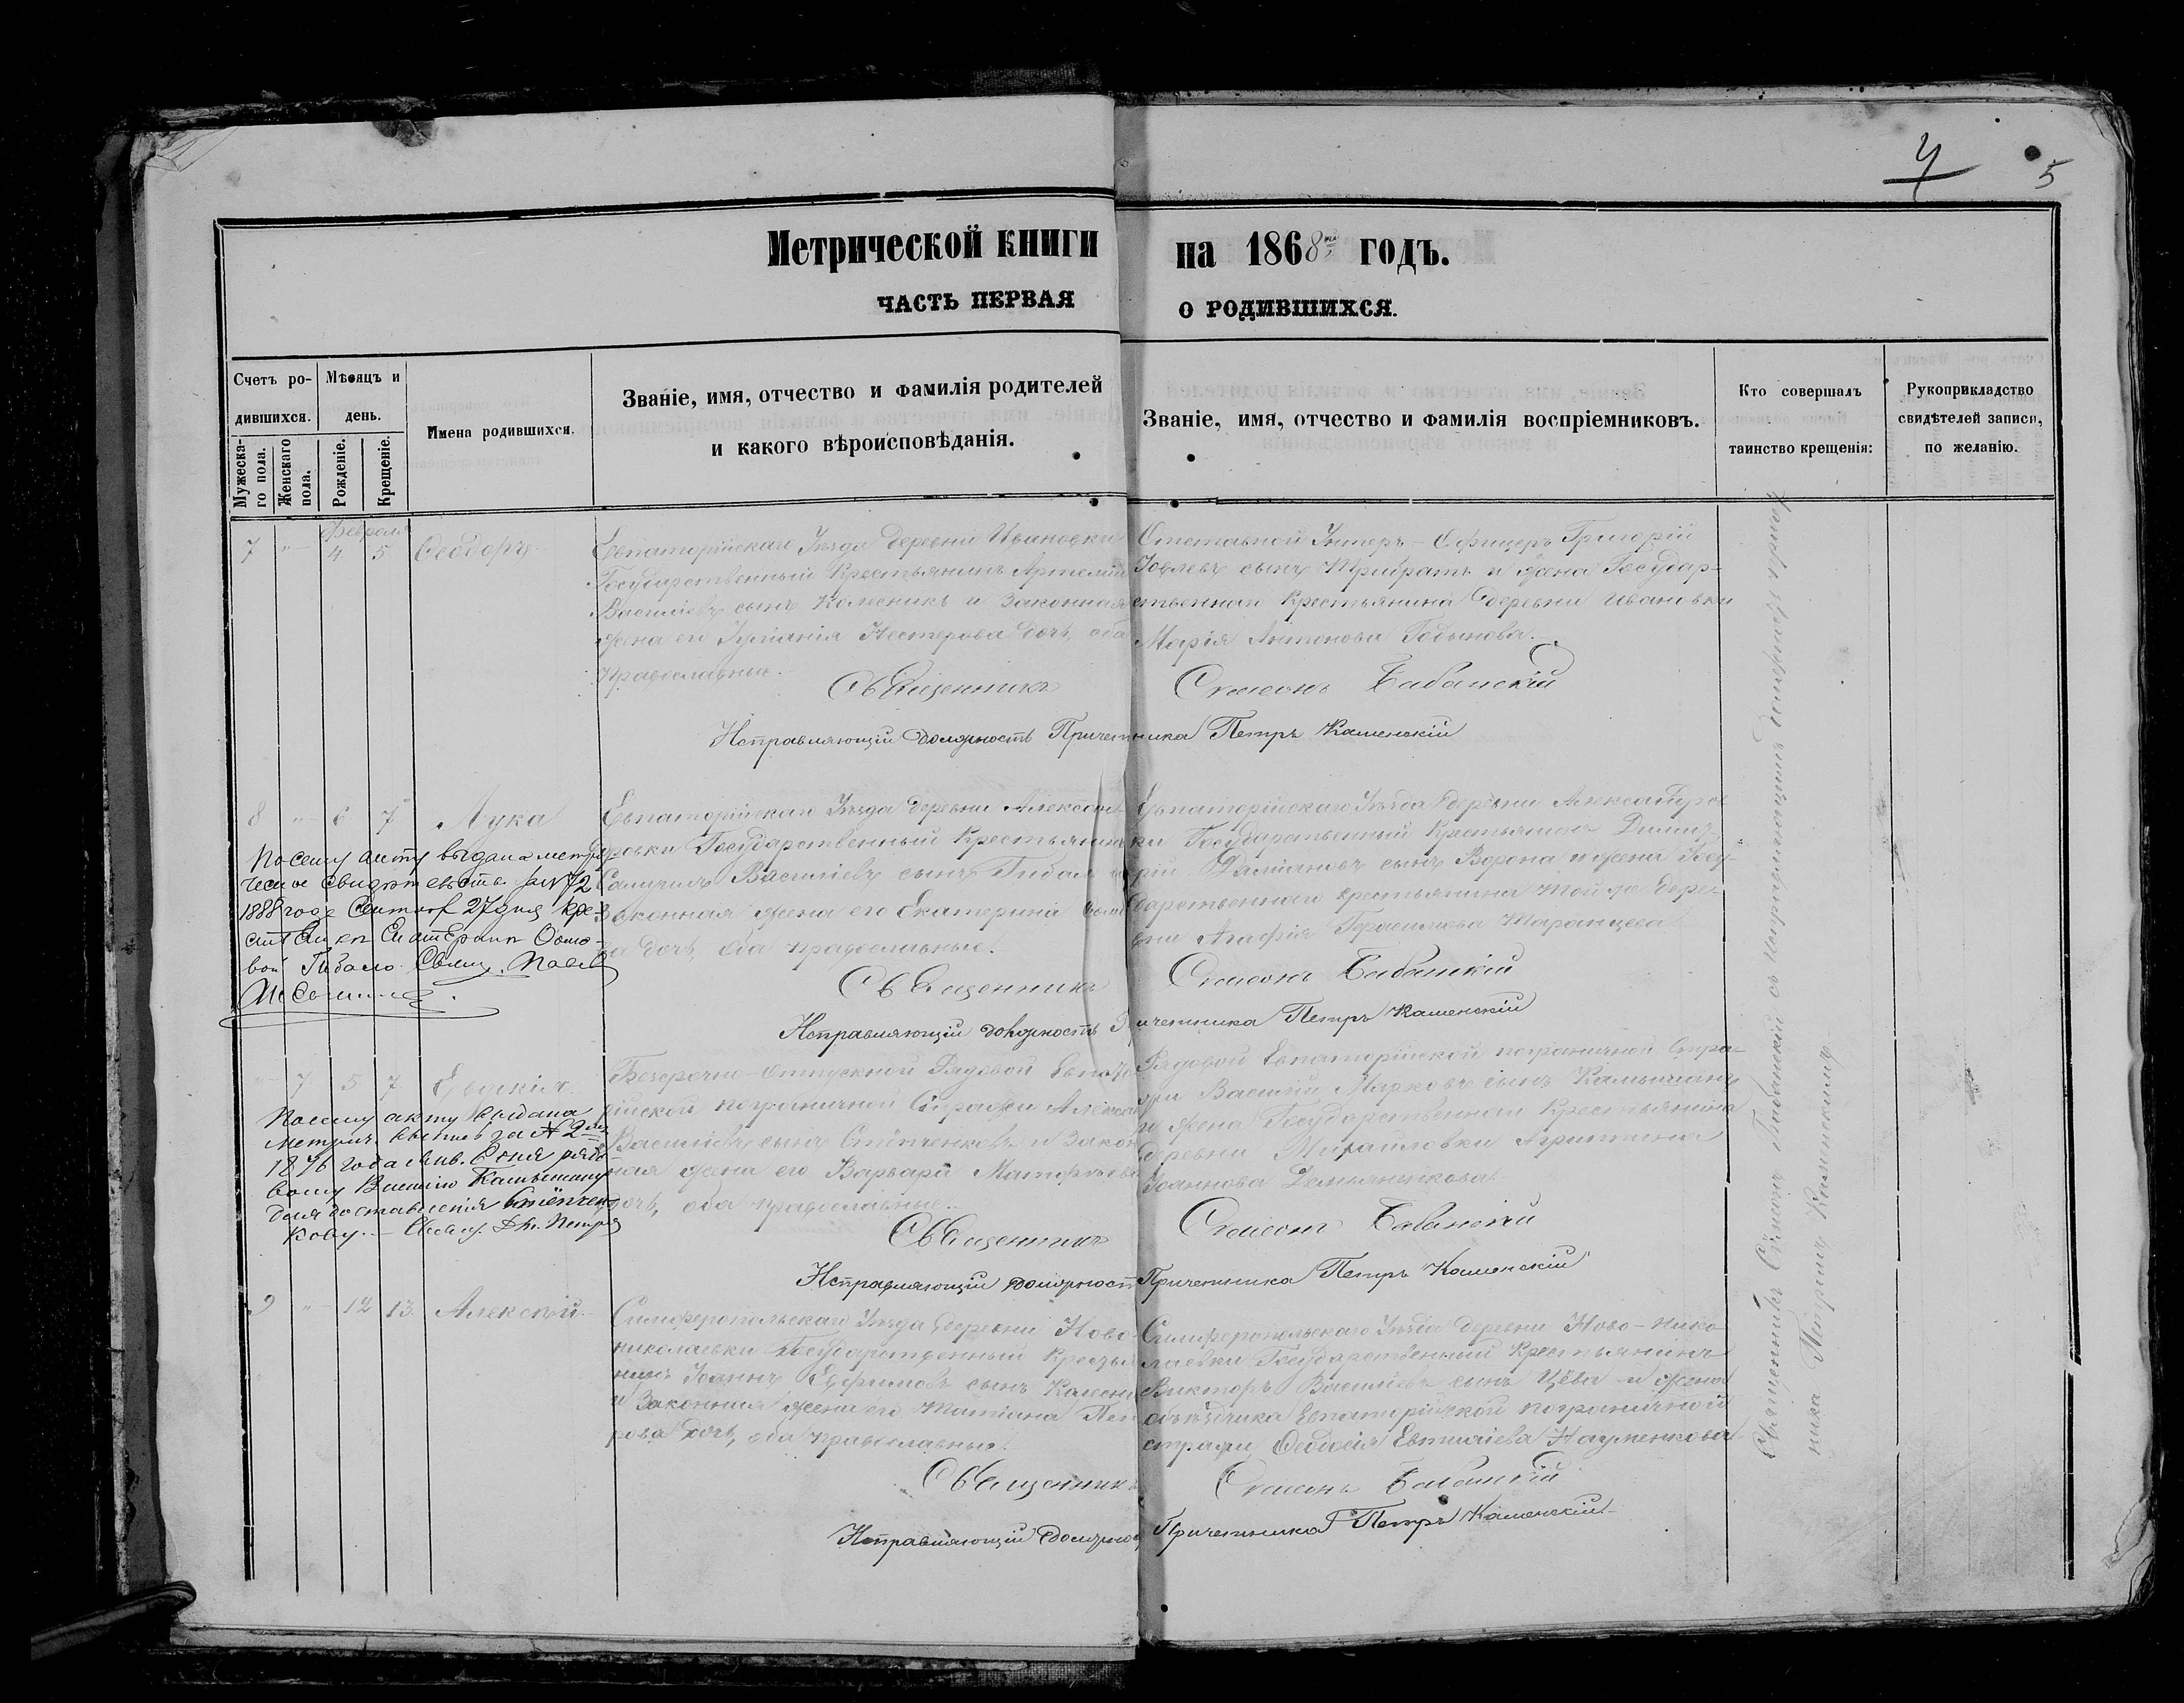 4 5
Метрической книги на 1868 годъ.
ЧАСТЬ ПЕРВАЯ О РОДИВШИХСЯ.
Счетъ родившихся.
Мужескаго пола.
Женскаго пола.
Мѣсяцъ и день.
Рожденіе.
Крещеніе.
Имена родившихся.
Званіе, имя, отчество и фамилія родителей
и какого вѣроисповѣданія.
Званіе, имя, отчество и фамилія воспріемниковъ.
Кто совершалъ
таинство крещенія:
Рукоприкладство
свидѣтелей записи,
по желанію.
Февраля
7 " 4 5 Ѳеодоръ
Евпаторійскаго Уѣзда деревни Ивановки
Государственный Крестьянинъ Артемій
Василіевъ сынъ Колесникъ и Законная
жена его Іуліанія Нестерова дочь, оба
православные.
Отставной Унтеръ-Офицеръ Григорій
Іовлевъ сынъ и жена Государ-
ственнаго Крестьянина деревни Ивановки
Марія Антонова Годынова.
Священникъ Симеонъ Бабанскій
Исправляющій должность Причетника Петръ Каменскій
8 " 6 7 Лука
По сему акту выдана метри-
ческое свидѣтельство за № 72
1888 года 27 дня кре-
Гибало. Свящ.
Евпаторійскаго Уѣзда деревни Александ-
ровки Государственный Крестьянинъ
Самуилъ Василіевъ сынъ Гибал и
Законная жена его Екатерина
ва дочь, оба православные.
Евпаторійскаго Уѣзда деревни Александров
ки Государственный Крестьянинъ Дими-
рій Даміановъ сынъ Ворона и жена Госу-
дарственнаго крестьянина той же дерев
ни Агафія Герасимова Таранцева
Священникъ Симеонъ Бабанскій
Исправляющій должность Причетника Петръ Каменскій
" 7 5 7 Евдокія
По сему акту выдана
метрич. выпись за № 2
1876 года Янв. 8 дня рядо-
вому Василію Камышану
для доставленія Стёпчен
кову. Свящ. Петръ
Безсрочно-Отпускной Рядовой Евпато
рійской пограничной Стражи Алекса
Василіевъ сынъ Стёпченковъ и Закон
ная жена его Варвара Матфѣева
дочь, оба православные.
Рядовой Евпаторійской пограничной Стра-
жи Василій Марковъ сынъ Камышанъ
и жена Государственнаго Крестьянина
деревни Михайловки Агриппина
Іоаннова Демьяненкова
Священникъ Симеонъ Бабанскій
Исправляющій должность Причетника Петръ Каменскій
9 " 12 13 Алексѣй
Симферопольскаго Уѣзда деревни Ново-
николаевки Государственный Крестья
нинъ Іоаннъ Ефимовъ сынъ Колесни
и Законная жена его Татіана Пет
рова дочь, оба православные.
Симферопольскаго Уѣзда деревни Ново-Нико
лаевки Государственный Крестьянинъ
Викторъ Василіевъ сынъ Цёва и жена
объѣздчика Евпаторійской пограничной
стражи Ѳеодосія Евтихіева Науменкова
Священникъ Симеонъ Бабанскій
Исправляющій должнос Причетника Петръ Каменскій
Священникъ Симеонъ Бабанскій съ Исправляющимъ должность Причет
ника Петромъ Каменскимъ